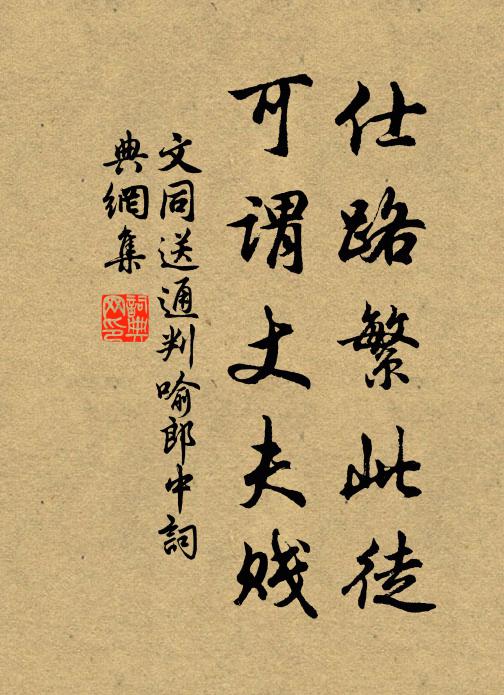 仕路繁此徒
可谓丈夫贱
文同送通判喻郎中詞
典網集
詞典网印